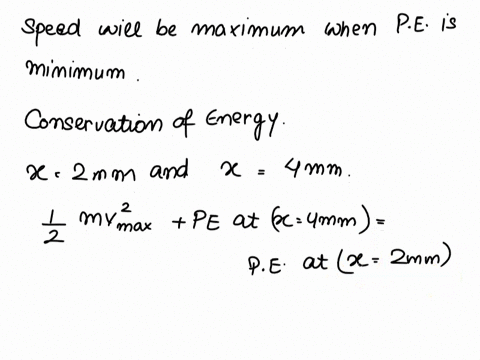 Speed will be maximum when P.E. is
minimum.
Conservation of Energy.
x = 2mm and x = 4mm.
1/2 mv²max + PE at (x=4mm) =
P.E. at (x = 2mm)